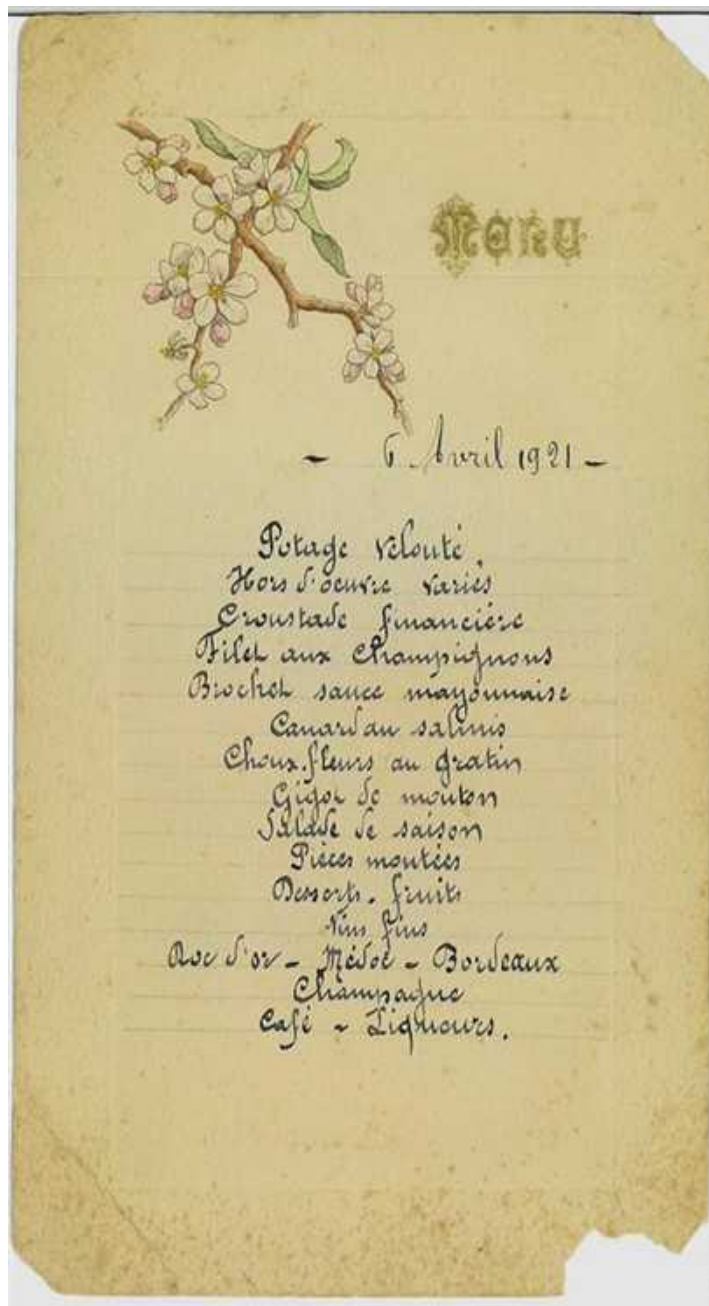 Menu
- 6 Avril 1921 -
Potage Velouté.
Hors d'oeuvre variés
Croustade financière
Filet aux Champignons
Brochet sauce mayonnaise
Canard au salmis
Choux-fleurs au gratin
Gigot de mouton
Salade de saison
Pièces montées
Desserts. fruits
Vins fins
Roc d'or - Médoc - Bordeaux
Champagne
Café - Liqueurs.